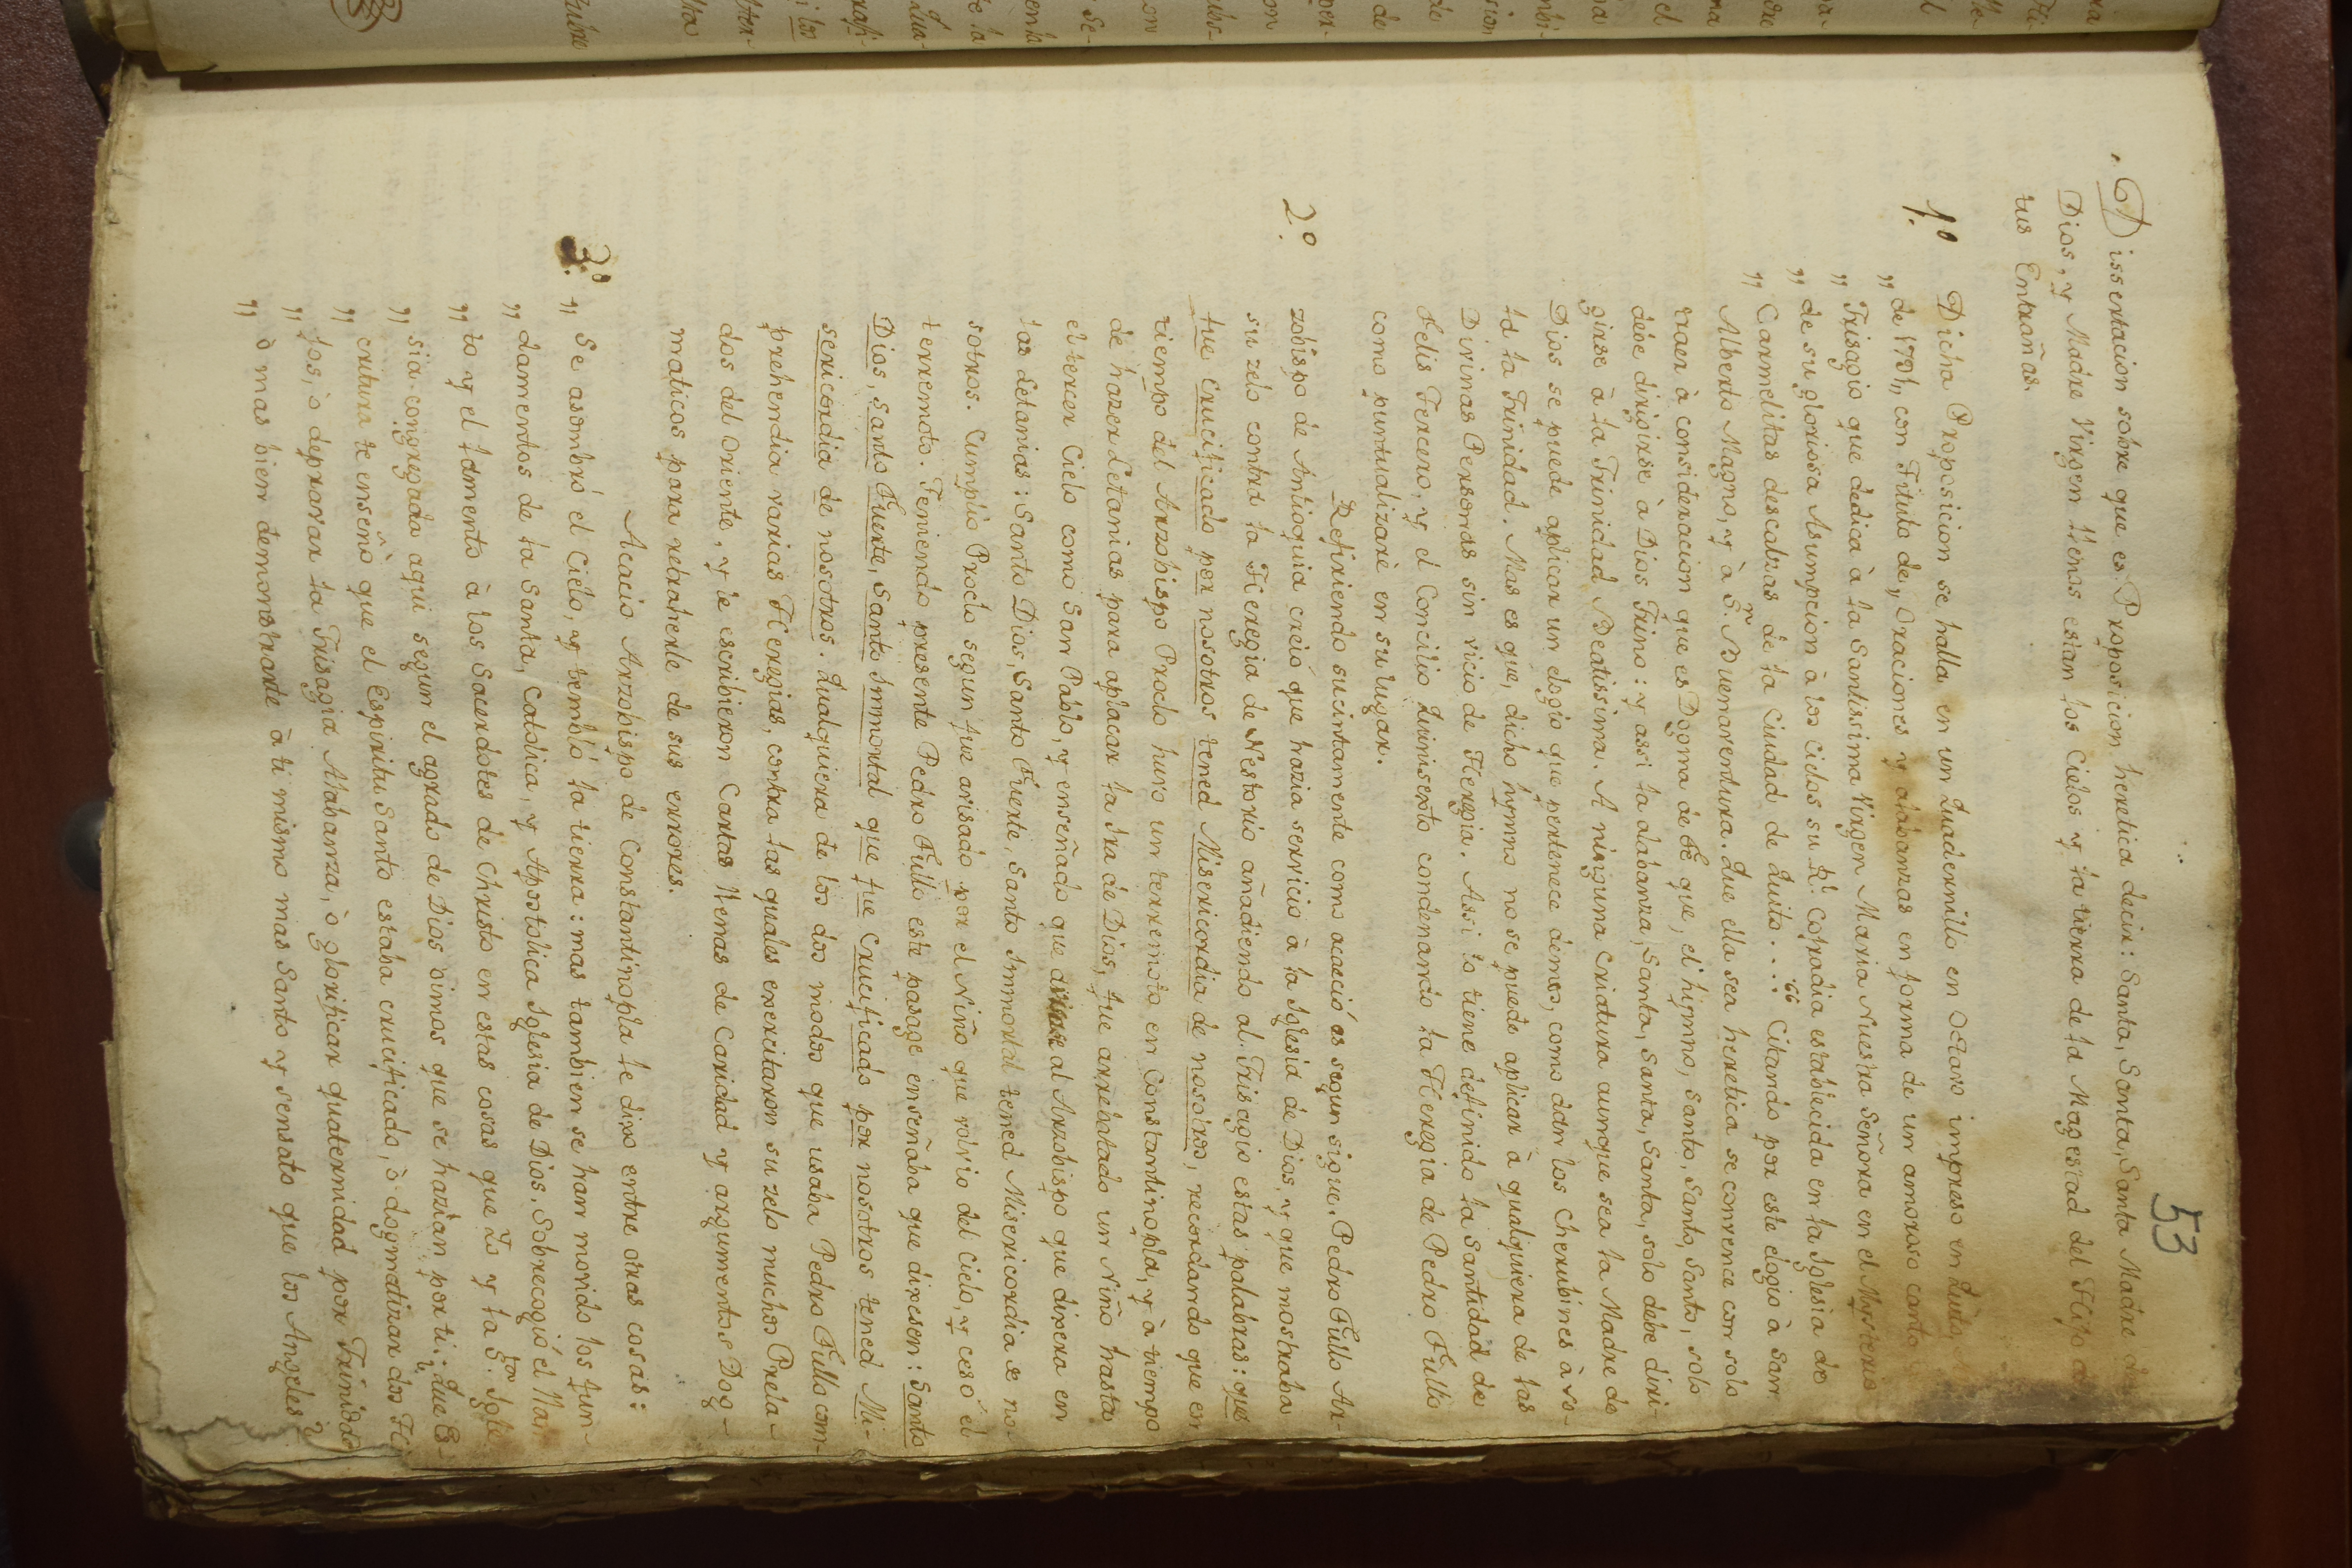 53
Dissertacion sobre que es Proposicion heretica decir: Santa, Santa, Santa Madre de
Dios, y Madre Virgen llenos estan los Cielos y la tierra de la Magestad del Hijo de
tus Entrañas.
1.º Dicha Proposicion se halla en un Quadernillo en Octavo impreso en Quito,
„ de 1791, con Titulo de „ Oraciones y alabanzas en forma de un amoroso canto
„ Trisagio que dedica à la Santissima Virgen Maria Nuestra Señora en el Mysterio
„ de su gloriosa Asumpcion à los Cielos su Rl. Cofradia establecida en la Iglesia de
„ Carmelitas descalzas de la Ciudad de Quito .... " Citando por este elogio à San
Alberto Magno, y à Sn. Buenaventura. Que ella sea heretica se convence con solo
traer à consideracion que es Dogma de Fe que, el himno, Santo, Santo, Santo, solo
debe dirigirse à Dios Trino: y assi la alabanza, Santa, Santa, Santa, solo debe diri-
girse à la Trinidad Beatissima. A ninguna criatura aunque sea la Madre de
Dios se puede aplicar un elogio que pertenece demos, como dan los Cherubines à so-
la la Trinidad. Mas es que, dicho hymno no se puede aplicar à qualquiera de las
Divinas Personas sin vicio de Heregia. Assi lo tiene definido la Santidad de
Felis Tercero, y el Concilio Quinisexto condenando la Heregia de Pedro Fullo
como puntualizarè en su lugar.
2.º Refiriendo sucintamente como acaeció es segun sigue. Pedro Fullo Ar-
zobispo de Antioquia creió que hazia servicio à la Iglesia de Dios, y que mostraba
su zelo contra la Heregia de Nestorio añadiendo al Trisagio estas palabras: que
fue crucificado por nosotros tened Misericordia de nosotros, recordando que en
tiempo del Arzobispo Proclo huvo un terremoto en Constantinopla, y à tiempo
de hazer Letanias para aplacar la Ira de Dios, fue arrebatado un Niño hasta
el tercer Cielo como San Pablo, y enseñado que avisase al Arzobispo que dixera en
las Letanias: Santo Dios, Santo Fuerte, Santo Immortal tened Misericordia de no-
sotros. Cumplió Proclo segun fue avisado por el Niño que volvio del Cielo, y cesó el
terremoto. Teniendo presente Pedro Fullo este pasage enseñaba que dixesen: Santo
Dios, Santo Fuerte, Santo Immortal que fue Crucificado por nosotros tened Mi-
sericordia de nosotros. Qualquiera de los dos modos que usaba Pedro Fullo com-
prehendia varias Heregias, contra las quales exercitaron su zelo muchos Prela-
dos del Oriente, y le escribieron Cartas llenas de Caridad y argumentos Dog-
maticos para retraherle de sus errores.
Acacio Arzobispo de Constantinopla le dixo entre otras cosas:
3.º „ Se asombró el Cielo, y tembló la tierra: mas tambien se han movido los fun-
„ damentos de la Santa, Catolica, y Apostolica Iglesia de Dios. Sobrecogió el llan-
„ to y el lamento à los Sacerdotes de Christo en estas cosas que Yo y la Sta. Igle-
„ sia congregada aqui segun el agrado de Dios oimos que se hazian por ti: Que Es-
„ critura te enseñò que el Espiritu Santo estaba crucificado, ò dogmatizar dos Hi-
„ jos, ò depravar la Trisagia Alabanza, ò glorificar quaternidad por Trinidad
„ ò mas bien demonstrarte à ti mismo mas Santo y sensato que los Angeles?